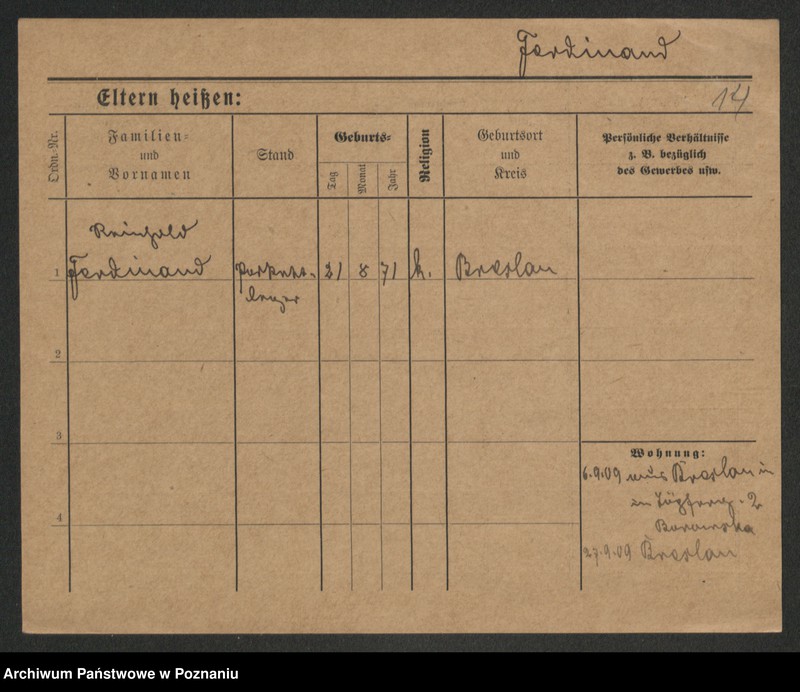 Ferdinand
Eltern heißen:
14
Ordn.-Nr.
Familien=
und
Vornamen
Stand
Geburts=
Tag
Monat
Jahr
Religion
Geburtsort
und
Kreis
Persönliche Verhältnisse
z. B. bezüglich
des Gewerbes usw.
Reinhold
1 Ferdinand Parkett- 21 8 71 k. Breslau
leger
2
3
Wohnung:
6.9.09 aus Breslau
zu 2
4
27.9.09 Breslau
Archiwum Państwowe w Poznaniu